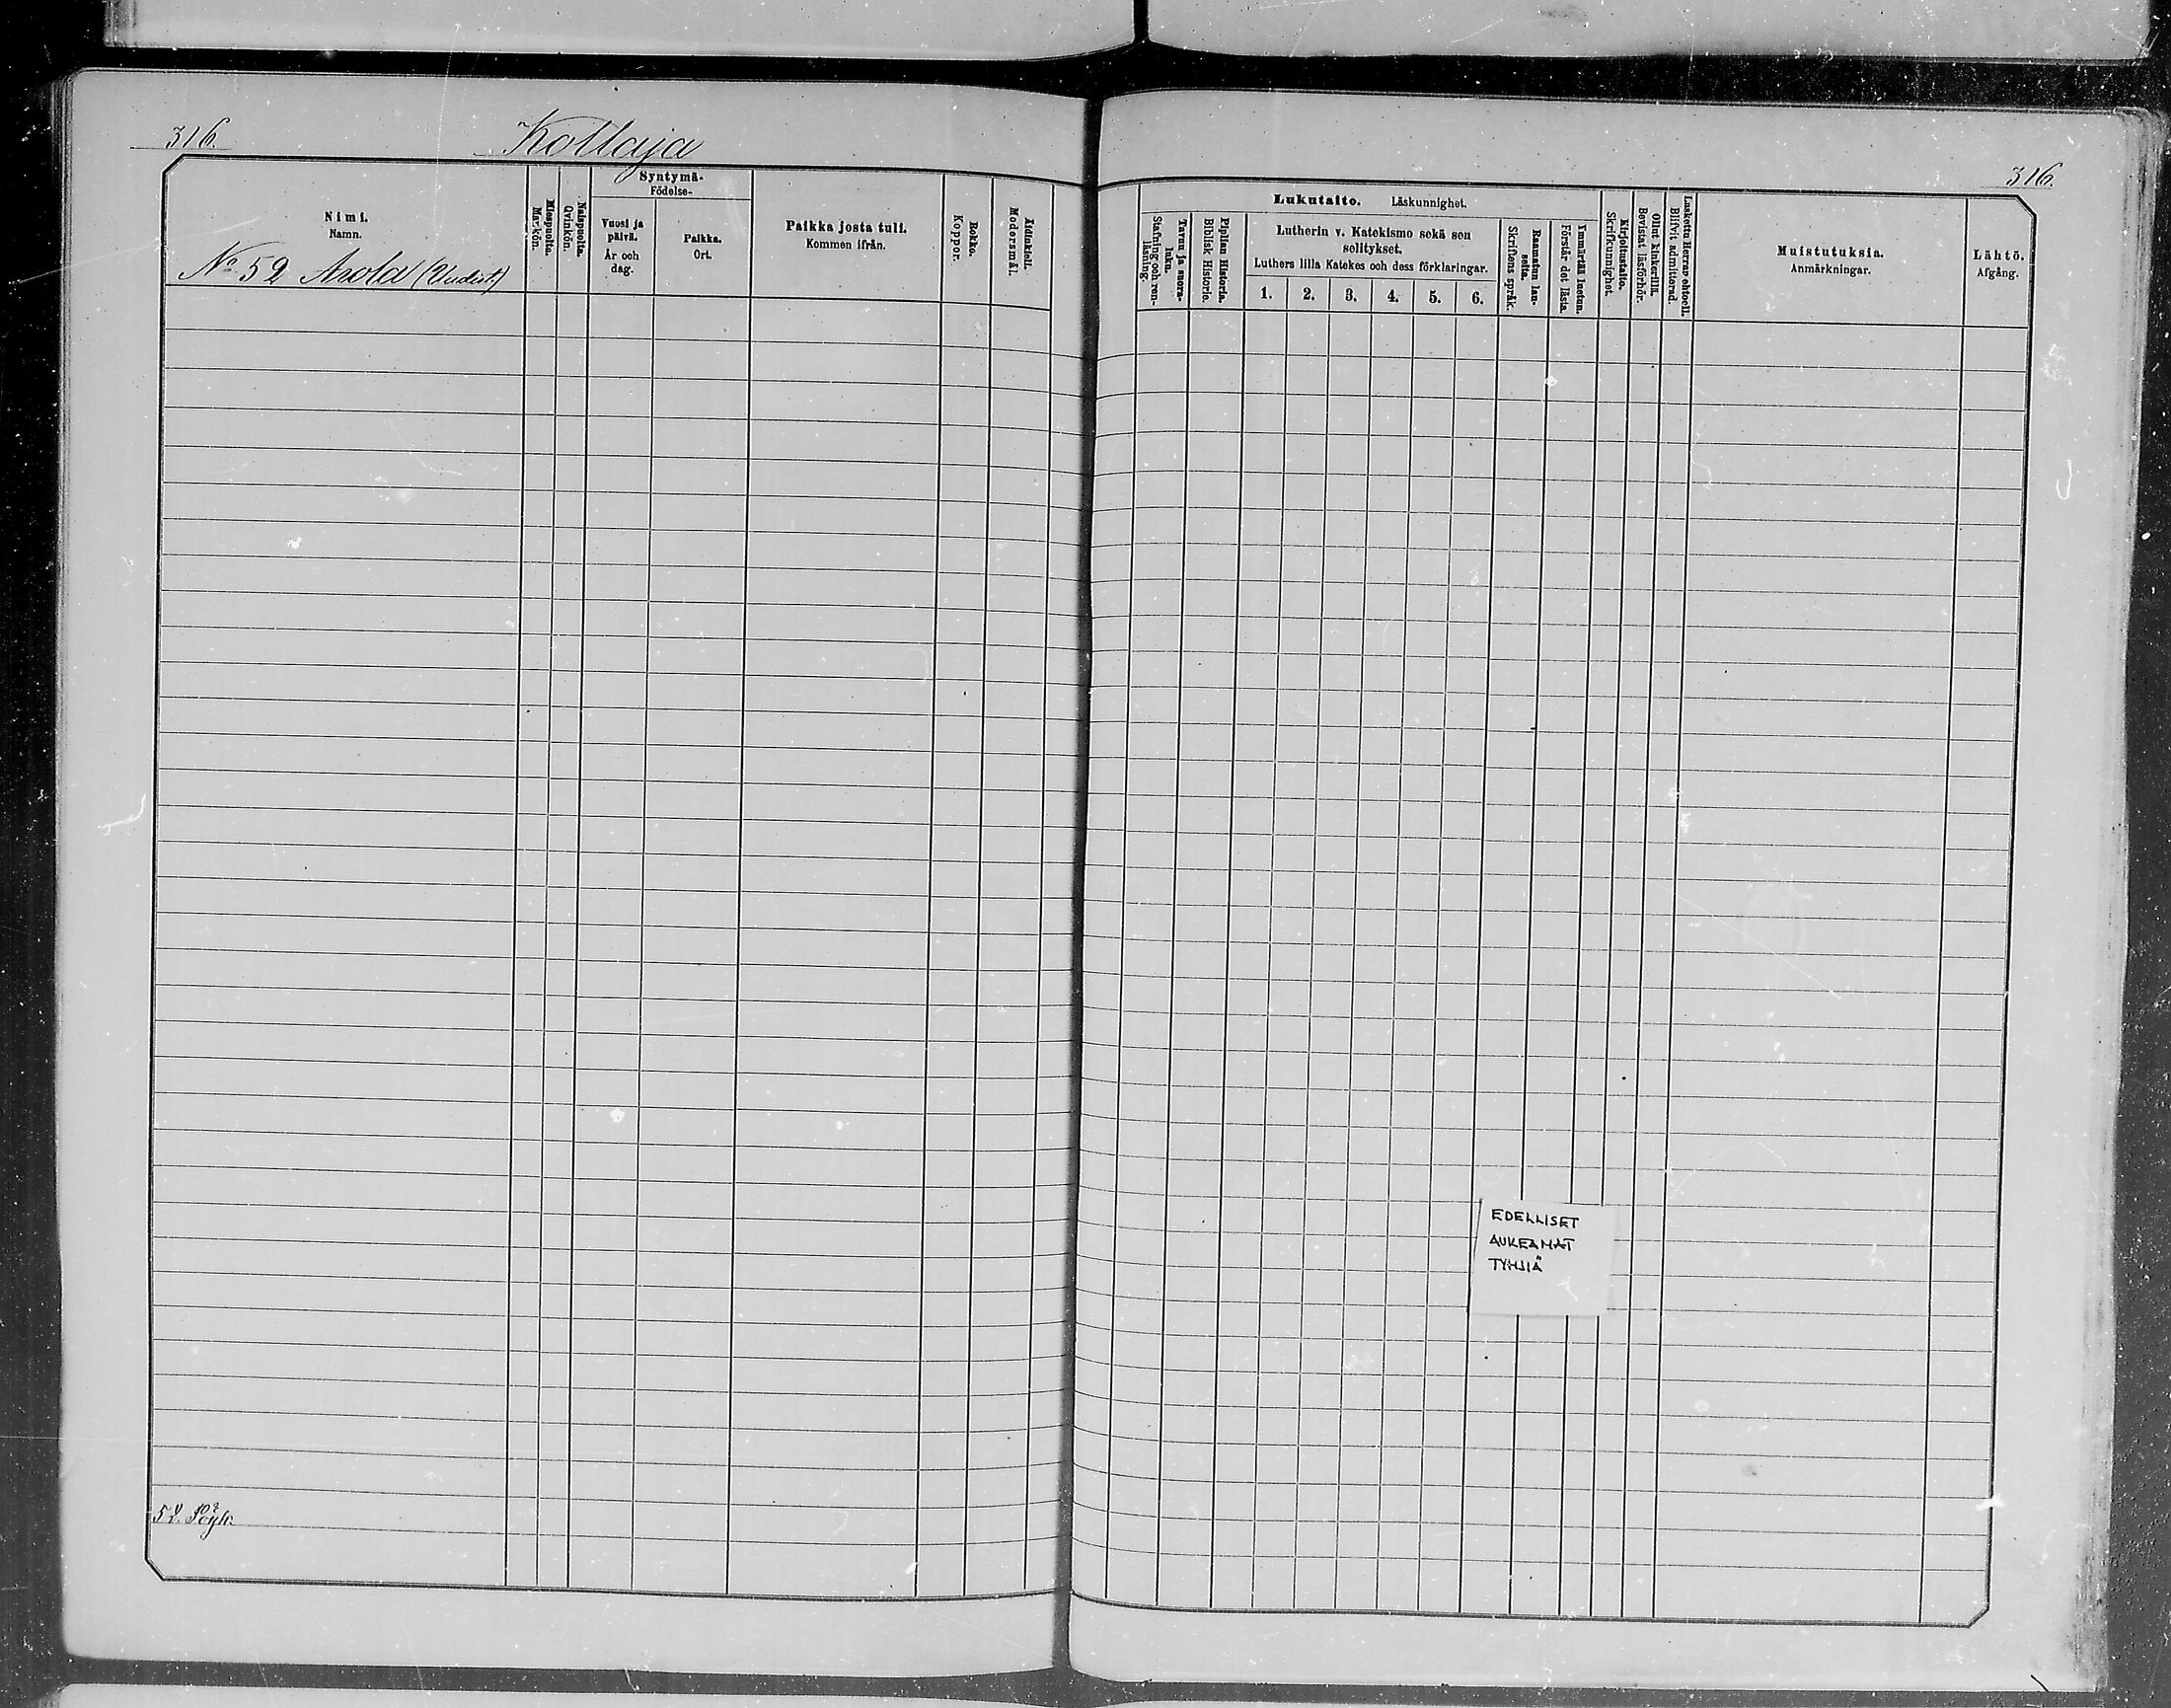 316.
Kollaja
316.
Nimi.
Namn.
No 52 Arola (Uudist)
Miespuolta.
Mankön.
Naispuolta.
Qvinkön.
Syntymä-
Födelse-
Vuosi ja
päivä.
År och
dag.
Paikka.
Ort.
Paikka josta tuli.
Kommen ifrån.
Rokko.
Koppor.
Äidinkieli.
Modersmål.
Lukutaito. Läskunnighet.
Tavuu ja suora-
luku.
Stafning och ren-
läsning.
Piplian Historia.
Biblisk Historie.
Lutherin v. Katekismo sekä sen
selitykset.
Luthers lilla Katekes och dess förklaringar.
1. 2. 3. 4. 5. 6.
Raamatun lau-
seita.
Skriftens språk.
Ymmärtää luetun.
Förstår det lästa.
Kirjoitustaito.
Skrifkunnighet.
Ollut kinkerillä.
Bevistat läsförhör.
Laskettu Herran ehtooll.
Blifvit admitterad.
Muistutuksia.
Anmärkningar.
Lähtö.
Afgång.
EDELLISET
AUKEAMAT
TYHJIÄ
52.